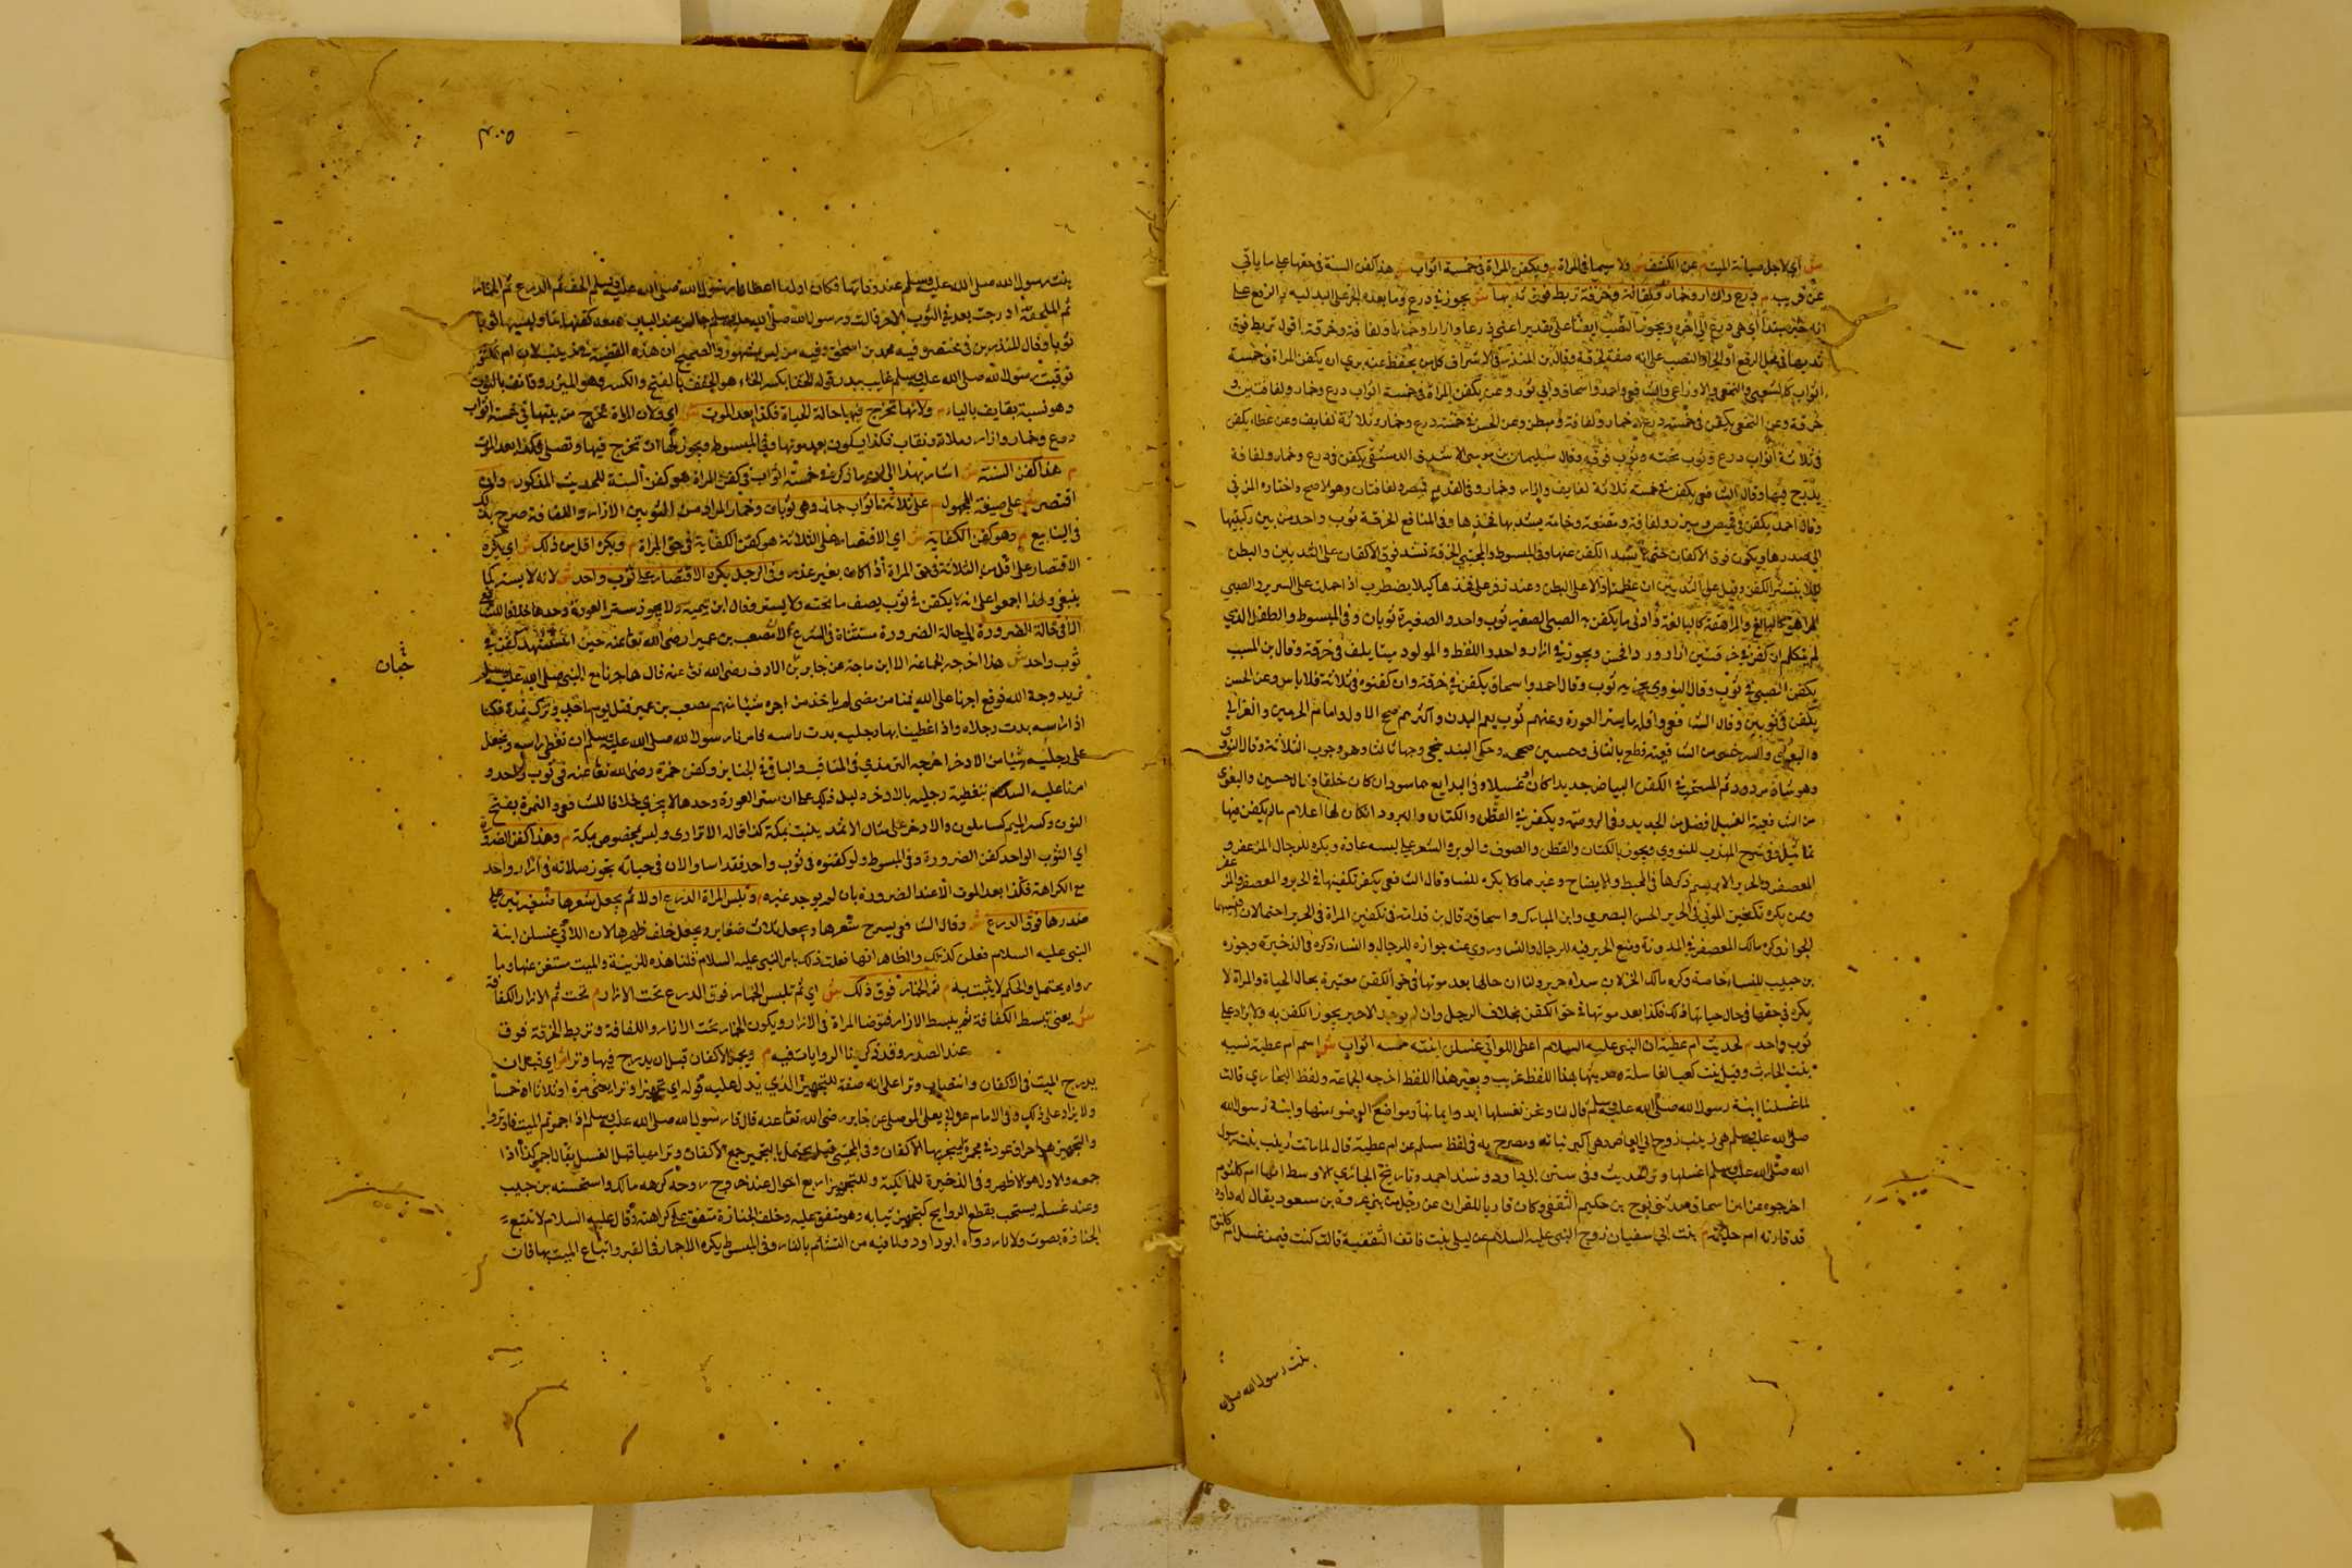 ش اي لاجل صيانة الميت م عن الكشف ش ولا سيما في المراة م ويكفن المراة في خمسة اثواب ش هذا كفن السنة في حقها على ما ياتي
عن قريب م درع وازار وخمار ولفافة وخرقة تربط فوق ثدييها ش يجوز في درع وما بعده الجر على البدلية والرفع على
انه خبر مبتدأ اي هي درع الى اخره ويجوز النصب ايضا على تقدير اعني درعا وازارا وخمارا ولفافة وخرقة اقول تربط فوق
ثدييها في محل الرفع او الجر او النصب على انه صفة لخرقة وقال ابن المنذر في الاشراف كل من يحفظ عنه يرى ان يكفن المراة في خمسة
اثواب كالشعبي والنخعي والاوزاعي والشافعي واحمد واسحاق وابي ثور وعن يكفن المراة في خمسة اثواب درع وخمار ولفافتين و
خرقة وعن النخعي يكفن في خمسة درع وخمار ولفافة ومبطن وعن الحسن في خمسة درع وخمار وثلاثة لفايف وعن عطاء يكفن
في ثلاثة اثواب درع وثوب تحته وثوب فوقه وقال سليمان بن موسى الاشدق الدمشقي يكفن في درع وخمار ولفافة
يدرج فيها وقال الشافعي يكفن في خمسة ثلاثة لفايف وازار وخمار وفي القديم قميص ولفافتان وهو لاصح واختاره المزني
وقال احمد يكفن في قميص وميزر ولفافة ومقنعة وخامة يشد بها فخذها وفي المنافع الخرقة ثوب واحد من بين ركبتها
الى صدرها ويكون فوق الاكفان حتى لا ينشد الكفن عنها وفي المبسوط والمجتبى الخرقة تشد فوق الاكفان على الثديين والبطن
ليلا ينتشر الكفن وقيل على الثديين ان عظمتا والا على البطن وعند زفر على فخذها كيلا يضطرب اذا حملت على السرير والصبي
المراهق كالبالغ والمراهقة كالبالغة وادنى ما يكفن به الصبي الصغير ثوب واحد والصغيرة ثوبان وفي المبسوط والطفل الذي
لم يتكلم ان كفن في خرقتين ازار وردا فحسن ويجوز في ازار واحد والسقط والمولود ميتا يلف في خرقة وقال بن المسيب
يكفن الصبي في ثوب وقال الثوري يجزيه ثوب وقال احمد واسحاق يكفن في خرقة وان كفنوه في ثلاثة فلا باس وعن الحسن
يكفن في ثوبين وقال الشافعي واقله ما يستر العورة وعنهم ثوب يعم البدن واكثرهم صحح الاول وامام الحرمين والغزالي
والبغوي والسرخسي من الشافعية قطع بالثاني وحسين صححه وحكى البندنيجي وجها ثالثا وهو وجوب الثلاثة وقال النووي
وهو شاذ مردود ثم المستحب في الكفن البياض جديدا كان او غسيلا وفي البدايع هما سوا وان كان خلقا وقال الحسين والبغوي
من الشافعية الغسيل افضل من الجديد وفي الروضة ويكفن في القطن والكتان والبرود اذا كان لها اعلام ما لم يكفن فيها
تماثيل وفي شرح المهذب للنووي ويجوز بالكتان والقطن والصوف والوبر والشعر على لبسه عادة ويكره للرجال المزعفر و
المعصفر والحرير الابريسم ذكرها في المحيط والايضاح وغيرهما ولا يكره للنسا وقال الشافعي يكره تكفينها في الحرير والمعصفر والمزعفر
وممن يكره تكفين الموتى في الحرير الحسن البصري وابن المبارك واسحاق قال بن قدامة في تكفين المراة في الحرير احتمالان اقيسهما
الجواز وكره مالك المعصفر في المدونة ومنع الحرير فيه للرجال والنسا وروي عنه جوازه للرجال والنساء ذكره في الذخيرة وجوزه
بن حبيب للنساء خاصة وكره مالك الخز لان سداه حرير ولنا ان حالها بعد موتها في حق الكفن معتبرة بحال الحياة والمراة لا
يكره في حقها في حال حياتها ذلك فكذا بعد موتها في حق الكفن بخلاف الرجل وان لم يوجد الا حرير يجوز الكفن به ولا يزاد على
ثوب واحد م لحديث ام عطية ان النبي عليه السلام اعطى اللواتي غسلن ابنته خمسة اثواب ش اسم ام عطية نسيبة
بنت الحارث وقيل بنت كعب الغاسلة وحديثها بهذا اللفظ غريب وبغير هذا اللفظ اخرجه الجماعة ولفظ البخاري قالت
لما غسلنا ابنة رسول الله صلى الله عليه وسلم قال لنا ونحن نغسلها ابدوا بميامنها ومواضع الوضوء منها وابنة رسول الله
صلى الله عليه وسلم هي زينب زوج ابي العاص وهي اكبر بناته ومصرح به في لفظ مسلم عن ام عطية قال لما ماتت زينب بنت رسول
الله صلى الله عليه وسلم اغسلنها وترا الحديث وفي سنن ابي داود ومسند احمد وتاريخ البخاري الاوسط انها ام كلثوم
اخرجوه عن ابن اسحاق حدثني نوح بن حكيم الثقفي وكان قاريا للقران عن رجل من بني عروة بن مسعود يقال له داود
قد ولدته ام حبيبة بنت ابي سفيان زوج النبي عليه السلام عن ليلى بنت قانف الثقفية قالت كنت فيمن غسل ام كلثوم
بنت رسول الله صلى
بنت رسول الله صلى الله عليه وسلم عند وفاتها فكان اول ما اعطانا رسول الله صلى الله عليه وسلم الحقا ثم الدرع ثم الخمار
ثم الملحفة ثم ادرجت بعد في الثوب الاخر قالت ورسول الله صلى الله عليه وسلم جالس عند الباب معه كفنها يناولنيها ثوبا
ثوبا وقال المنذري في مختصره فيه محمد بن اسحق وفيه من ليس بمشهور والصحيح ان هذه القصة في زينب لان ام كلثوم
توفيت ورسول الله صلى الله عليه وسلم غايب ببدر قوله الحقا بكسر الحاء هو المخفف بالفتح والكسر وهو الميزر وقانف بالنون
وهو نسبة بقايف بالياء م ولانها تخرج فيها حالة الحياة فكذا بعد الموت ش اي ولان المراة تخرج من بيتها في خمسة اثواب
درع وخمار وازار وملاة ونقاب فكذا يكون بعد موتها وفي المبسوط ويجوز لها ان تخرج فيها وتصلي فكذا بعد الموت
م هذا كفن السنة ش اشار بهذا الى ما ذكر في خمسة اثواب في كفن المراة هو كفن السنة للحديث المذكور م وان
اقتصر ش على صيغة المجهول م على ثلاثة اثواب جاز وهي ثوبان وخمار ش المراد من الثوبين الازار واللفافة صرح بذلك
في الينابيع م وهو كفن الكفاية ش اي الاقتصار على الثلاثة هو كفن الكفاية في حق المراة م ويكره اقل من ذلك ش اي يكره
الاقتصار على اقل من الثلاثة في حق المراة اذا كان بغير عذر م وفي الرجل يكره الاقتصار على ثوب واحد ش لانه لا يستر كما
ينبغي ولهذا اجمعوا على انه لا يكفن في ثوب يصف ما تحته ولا يستر وقال ابن تيمية ولا يجوز ستر العورة وحدها خلافا للشافعي
الا في حالة الضرورة ش لان حالة الضرورة مستثناة في الشرع م لان مصعب بن عمير رضي الله تعالى عنه حين استشهد كفن في
ثوب واحد ش هذا اخرجه الجماعة الا ابن ماجة عن خباب بن الارت رضي الله تعالى عنه قال هاجرنا مع النبي صلى الله عليه وسلم
خباب
نريد وجه الله فوقع اجرنا على الله فمنا من مضى لم ياخذ من اجره شيئا منهم مصعب بن عمير قتل يوم احد وترك نمرة فكنا
اذا غطينا راسه بدت رجلاه واذا غطينا بها رجليه بدت راسه فامرنا رسول الله صلى الله عليه وسلم ان نغطي راسه ونجعل
على رجليه شيئا من الاذخر اخرجه الترمذي في المناقب والباقي في الجنايز وكفن حمزة رضي الله تعالى عنه في ثوب واحد و
امرنا عليه السلام بتغطية رجليه بالاذخر دليل ذلك على ان ستر العورة وحدها لا يجزي خلافا للشافعي والنمرة بفتح
النون وكسر الميم كسا ملون والاذخر على مثال الاثمد ينبت بمكة كذا قاله الاترازي وليس بمخصوص بمكة م وهذا كفن الضرورة
اي الثوب الواحد كفن الضرورة وفي المبسوط ولو كفنوه في ثوب واحد فقد اساوا لان في حياته تجوز صلاته في ازار واحد
مع الكراهة فكذا بعد الموت الا عند الضرورة بان لم يوجد غيره م وتلبس المراة الدرع اولا ثم يجعل شعرها ضفيرتين على
صدرها فوق الدرع ش وقال الشافعي يسرح شعرها ويجعل ثلاث ضفاير ويجعل خلف ظهرها لان اللاتي غسلن ابنة
النبي عليه السلام فعلن كذلك والظاهر انها فعلت ذلك بامر النبي عليه السلام قلنا هذه للزينة والميت مستغن عنها وما
رواه يحتمل والحكم لا يثبت به م ثم الخمار فوق ذلك ش اي ثم تلبس الخمار فوق الدرع تحت الازار م تحت ثم الازار اللفافة
ش يعني تبسط اللفافة ثم يبسط الازار فتوضع المراة في الازار ويكون الخمار تحت الازار واللفافة وتربط الخرقة فوق
عند الصدر وقد ذكرنا الروايات فيه م ويجمر الاكفان قبل ان يدرج فيها وترا ش اي قبل ان
يدرج الميت في الاكفان وانتصاب وترا على انه صفة للتجمير الذي يدل عليه قوله اي تجميرا وترا يعني مرة او ثلاثا او خمسا
ولا يزاد على ذلك وفي الامام عن ابي يعلى الموصلي عن جابر رضي الله تعالى عنه قال قال رسول الله صلى الله عليه وسلم اذا اجمرتم الميت فاوتروا
والتجمير هو احراق عود في مجمرة ليبخر بها الاكفان وفي المجتبى قيل يحتمل بالتجمير جمع الاكفان وترا مهيا قبل الغسل يقال اجمر كذا اذا
جمعه والاول هو الاظهر وفي الذخيرة للمالكية وللتجمير اربع احوال عند خروج روحه كرهه مالك واستحسنه بن حبيب
وعند غسله يستحب بقطع الروايح كتجمير ثيابه وهو متفق عليه وخلف الجنازة متفق على كراهته وقال عليه السلام لا تتبع
الجنازة بصوت ولا نار رواه ابو داود ولما فيه من التشائم بالنار وفي المبسوط يكره الاجمار في القبر واتباع الميت بها قال